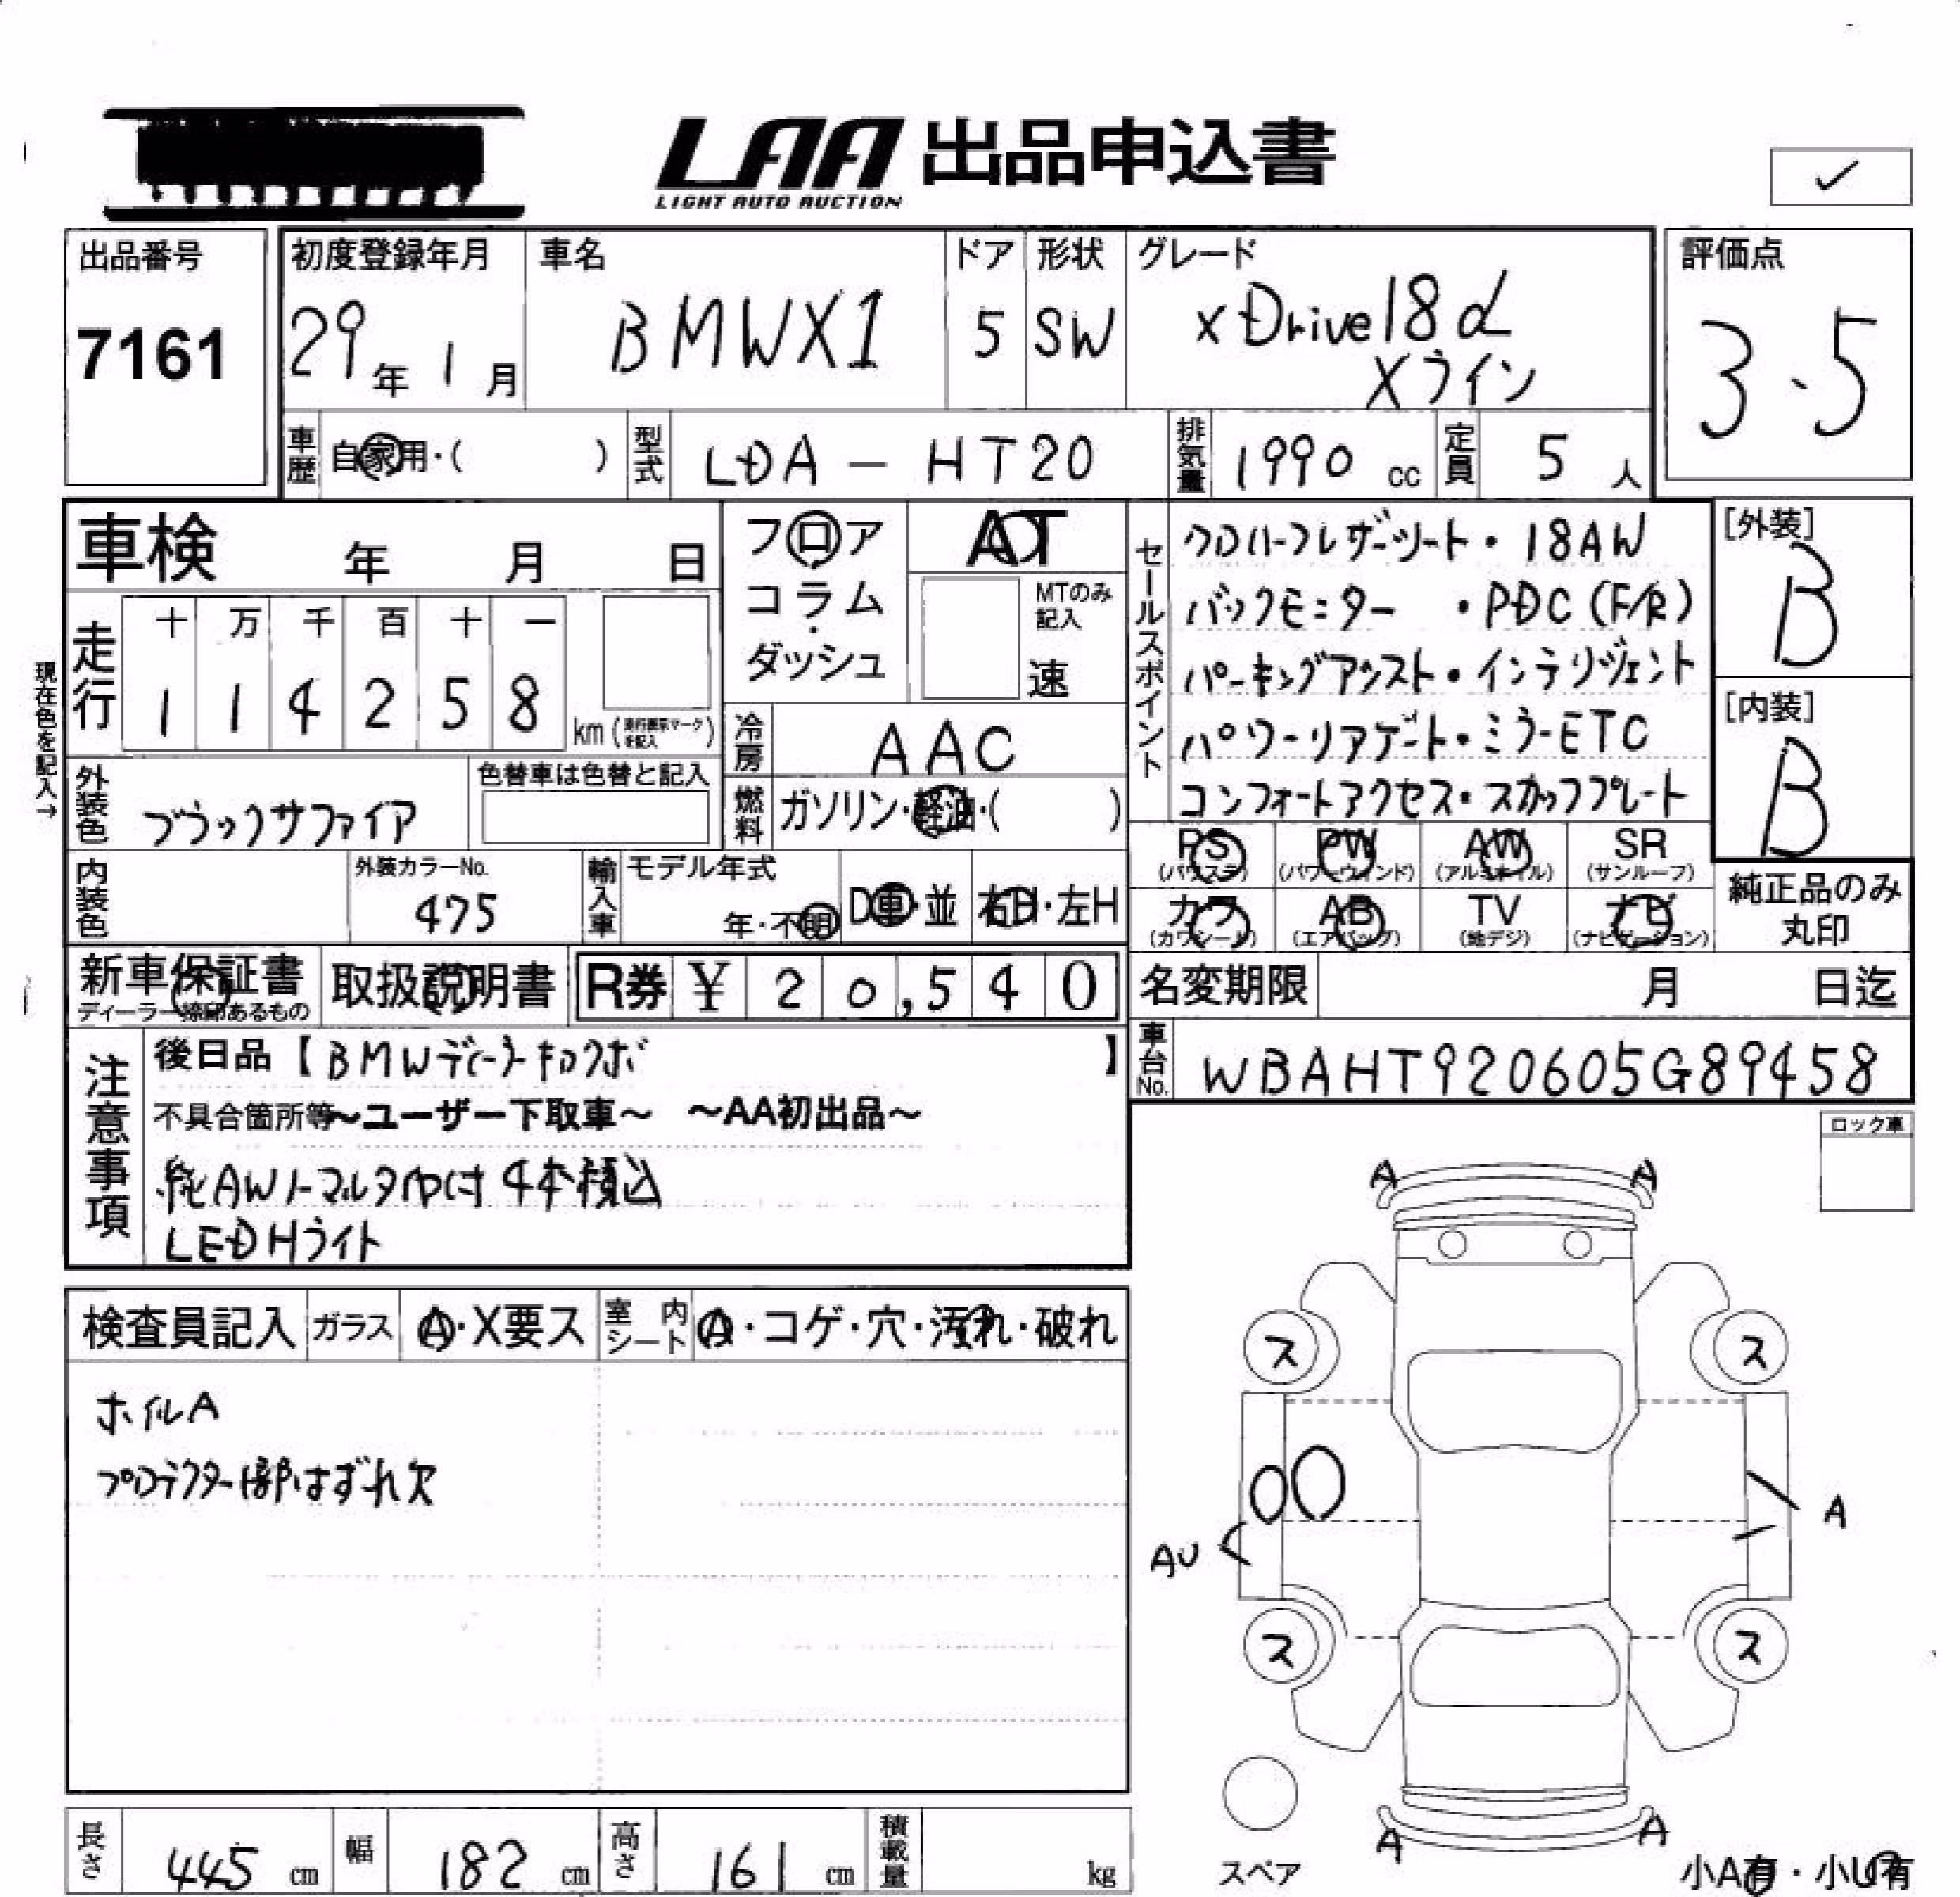 LAA 出品申込書
LIGHT AUTO AUCTION
✓
出品番号
7161
初度登録年月
29年1月
車名
BMWX1
ドア
5
形状
SW
グレード
xDrive18d
Xライン
評価点
3.5
車歴
自家用・( )
型式
LDA-HT20
排気量
1990cc
定員
5人
車検 年 月 日
走行
十 万 千 百 十 一
1 1 4 2 5 8
km(走行距離マークを記入)
現在色を記入→
外装色
ブラックサファイア
色替車は色替と記入
内装色
外装カラーNo.
475
輸入車
モデル年式
年・不明
D車・並
右H・左H
フロア
コラム
・
ダッシュ
AT
MTのみ記入
速
冷房
AAC
燃料
ガソリン・軽油・( )
セールスポイント
クロス/ハーフレザーシート・18AW
バックモニター ・PDC(F/R)
パーキングアシスト・インテリジェント
パワーリアゲート・ミラーETC
コンフォートアクセス・スカッフプレート
[外装]
B
[内装]
B
PS
(パワステ)
PW
(パワーウインド)
AW
(アルミホイル)
SR
(サンルーフ)
カワ
(カワシート)
AB
(エアバッグ)
TV
(地デジ)
ナビ
(ナビゲーション)
純正品のみ
丸印
新車保証書
ディーラー捺印あるもの
取扱説明書
R券 ¥20,540
名変期限 月 日迄
車台No.
WBAHT920605G89458
注意事項
後日品【BMWディーラーキロクボ】
不具合箇所等～ユーザー下取車～ ～AA初出品～
純AWノーマルタイヤ付 4本積込
LEDHライト
ロック車
検査員記入
ガラス
A・X要ス
室内シート
A・コゲ・穴・汚れ・破れ
ホイルA
プロテクター1部はずれ欠
A A
ス ス
A
AU
ス ス
A A
スペア
小A有・小U有
長さ
445cm
幅
182cm
高さ
161cm
積載量
kg